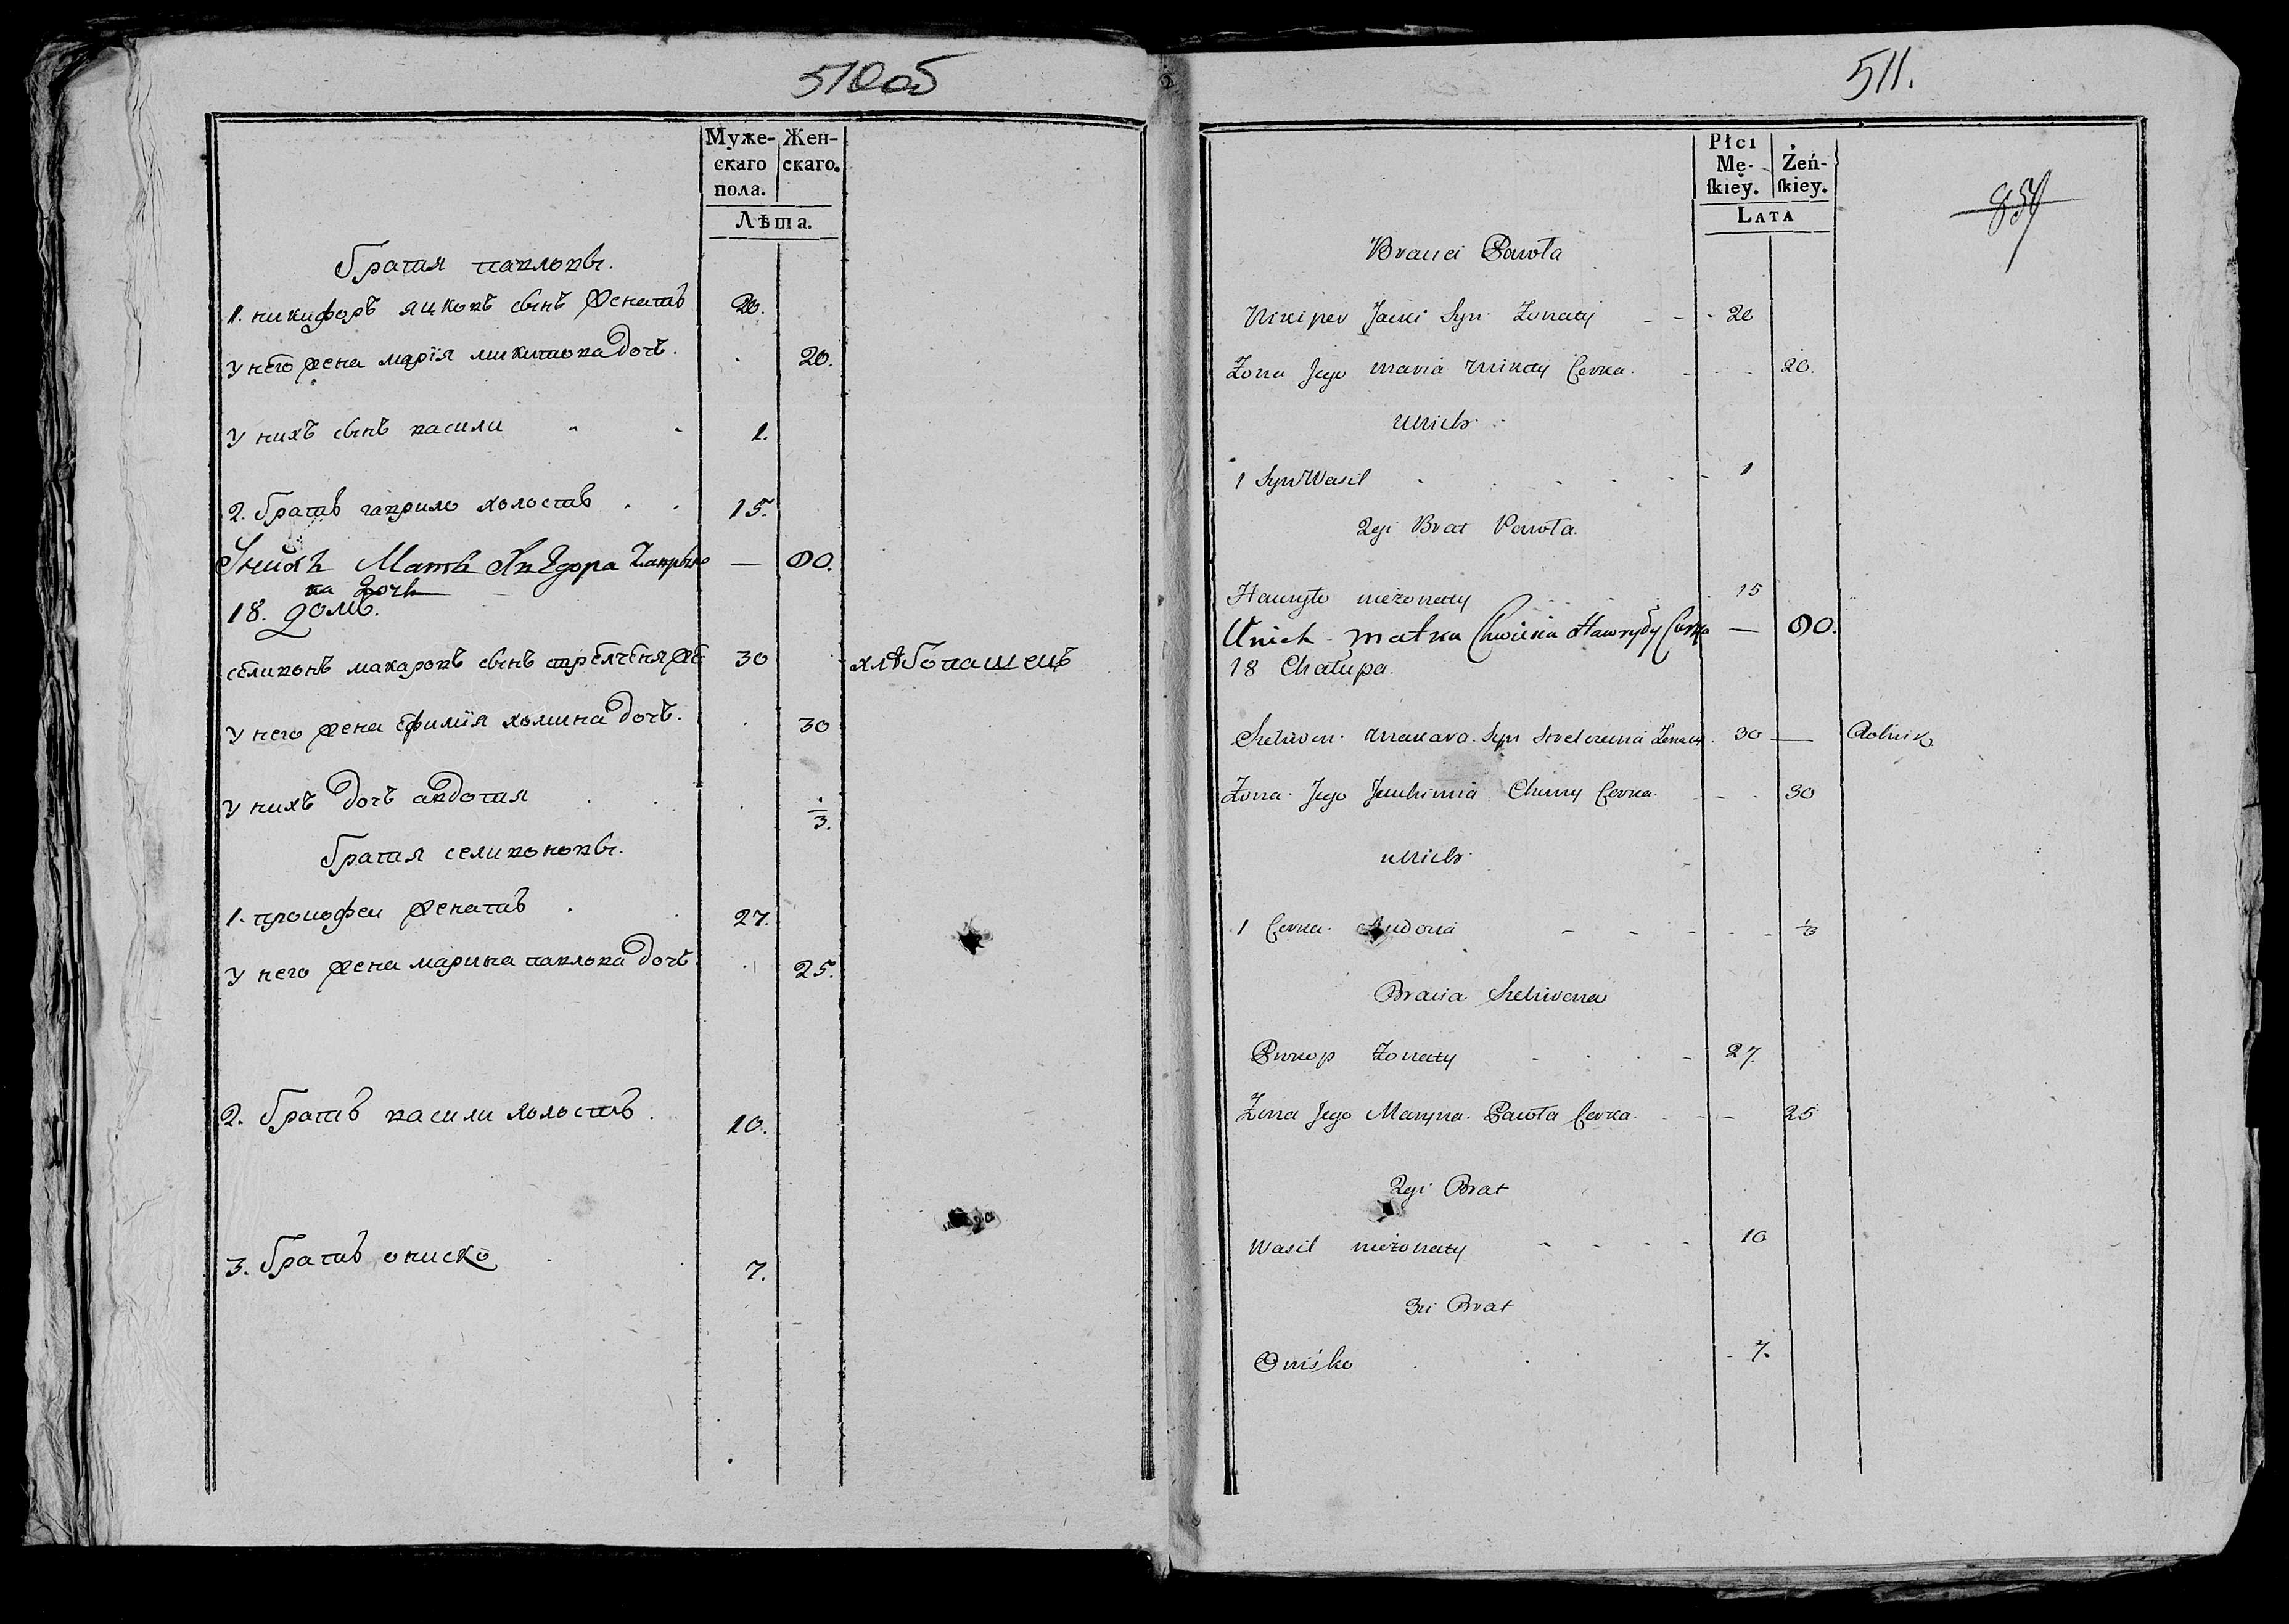 510об
Муже-
скаго
пола.
Жен-
скаго.
Лѣта.
братья павловы.
1. никифоръ яцковъ сынъ женатъ 20.
у него жена марїя микитова дочь. 20.
у нихъ сынъ василий 1.
2. братъ гаврило холостъ 15.
У нихъ Мать Хведора Гаврило 80.
ва дочь
18. домъ.
селивонъ макаровъ сынъ 30 хлѣбопашецъ
у него жена Ефимїя хомина дочь. 30
у нихъ дочь авдотия 1/3.
братья селивоновы.
1. прокофеи женатъ 27.
у него жена марина павлова дочь. 25.
2. братъ васили холостъ 10.
3. братъ ониско 7.
511.
Płci
Mę-
skiey.
Żeń-
skiey.
Lata
Bracia Pawła
Nikiper Jacki Syn Zonaty 20
Zona Jego Maria Mikity Corka 20.
Unich
1 Syn Wasil 1
2gi Brat Pawła
Hawryło nieżonaty 15
Unich matka Hawryły Corka 80.
18 Chałupa.
Seliwon Makara Syn 30 Rolnik
Zona Jego Juchimia Chomy Corka 30
unich
1 Corka Audotia 1/3
Bracia Seliwona
Prokop Zonaty 27
Zona Jego Maryna Pawła Corka 25
2gi Brat
Wasil nieżonaty 10
3ci Brat
Oniśko 7.